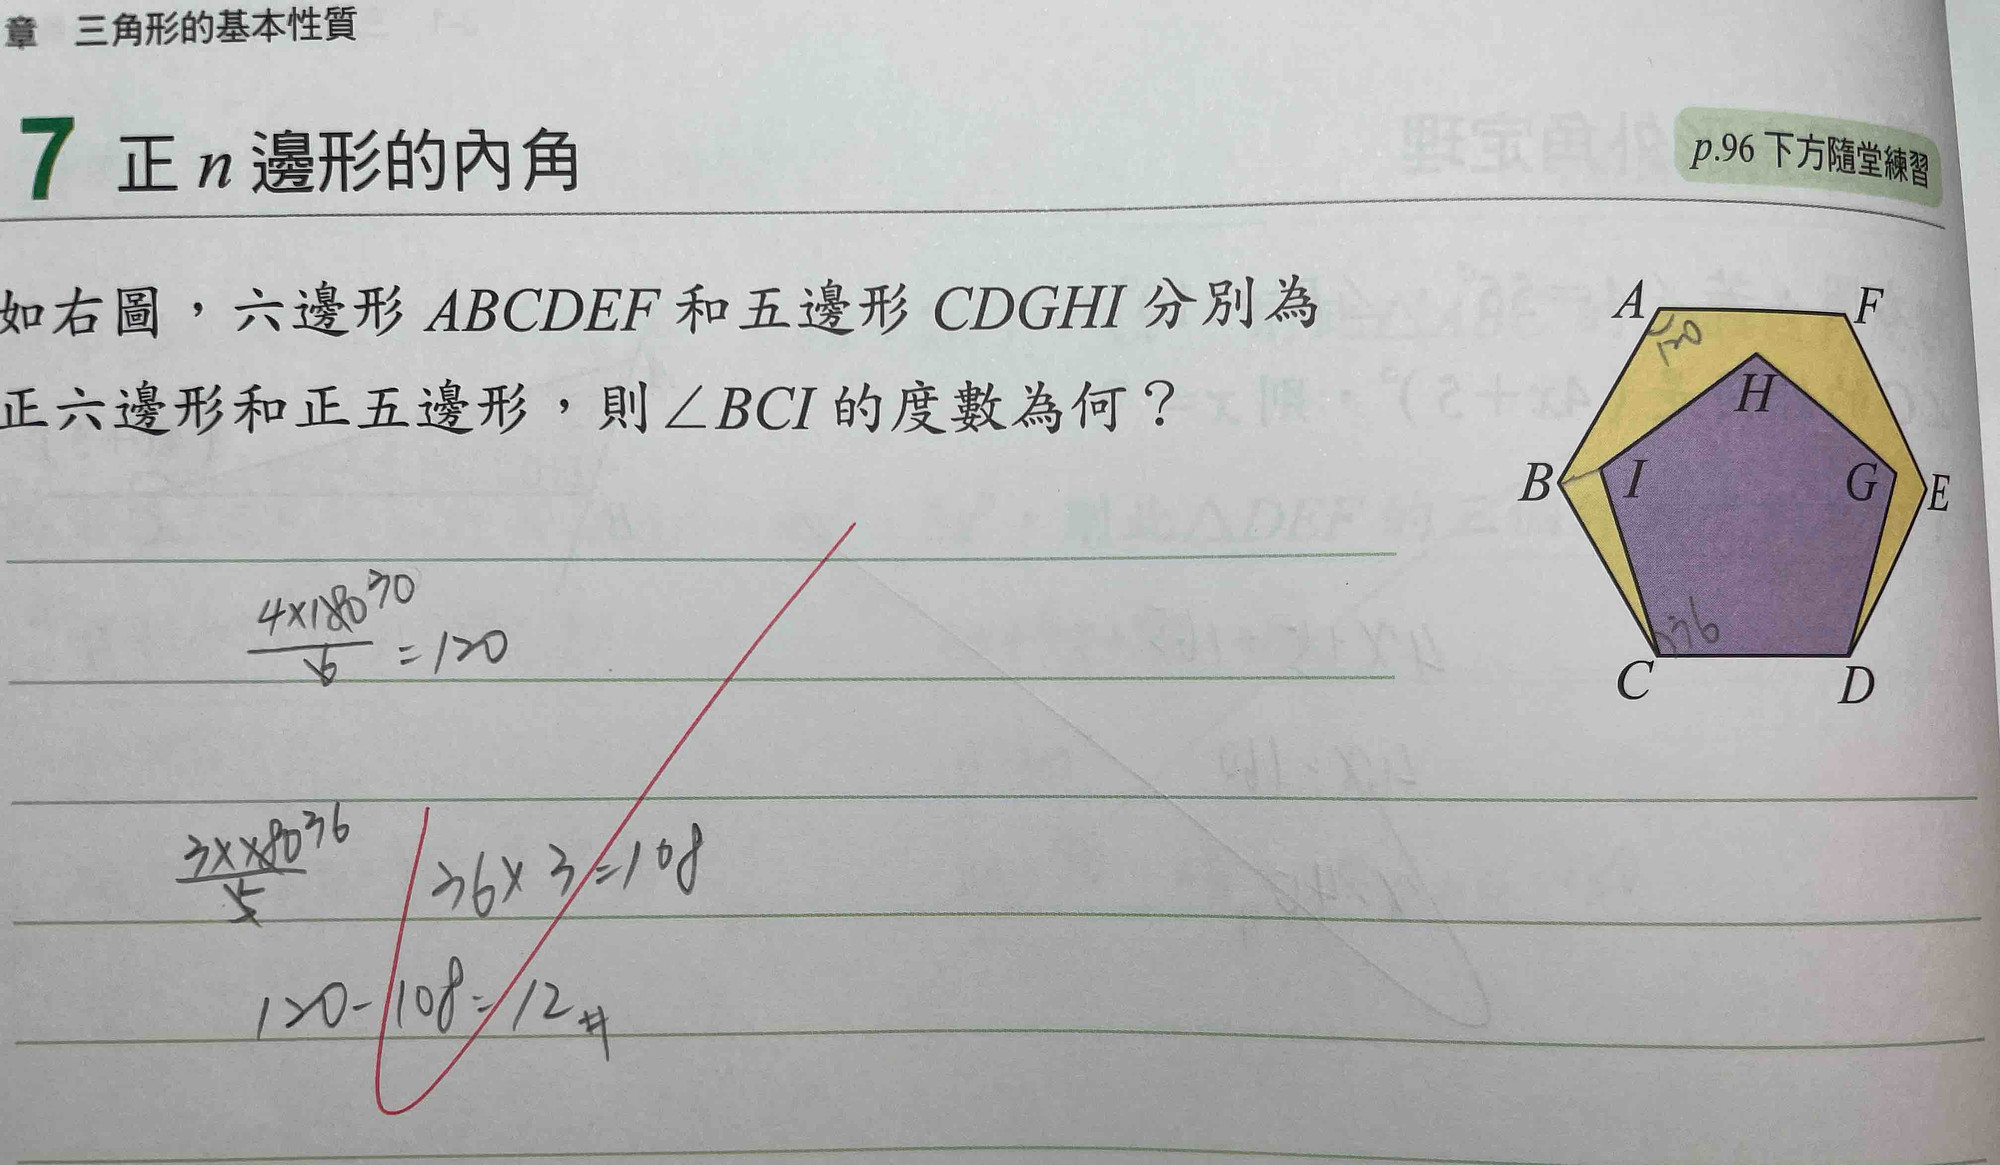 章 三角形的基本性質
7 正 n 邊形的內角
p.96 下方隨堂練習
如右圖，六邊形 ABCDEF 和五邊形 CDGHI 分別為
正六邊形和正五邊形，則∠BCI 的度數為何？
A
F
120
H
B
I
G
E
C
D
4×180 30
/6 = 120
3××80 36
/5
36×3=108
120-108=12#